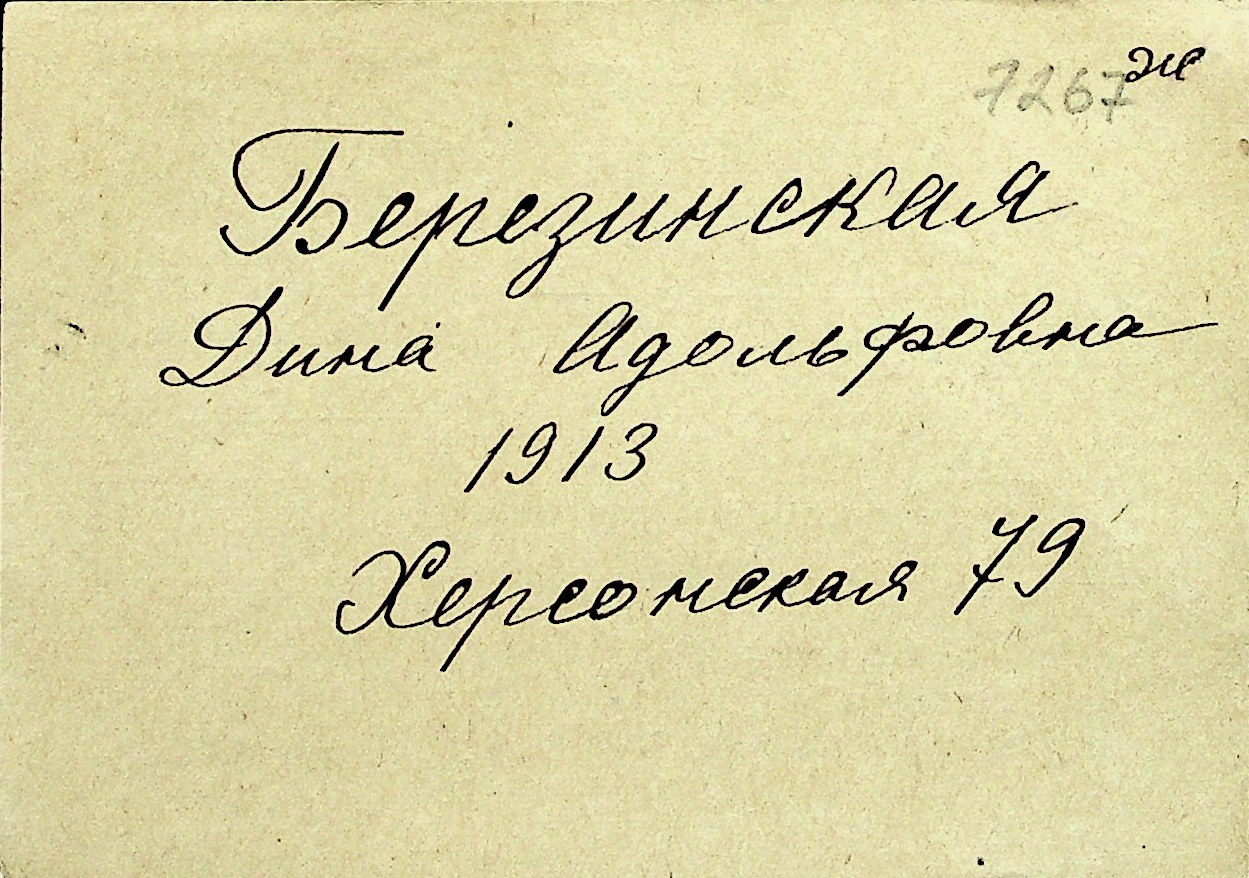 7267 ж
Березинская
Дина Адольфовна
1913
Херсонская 79